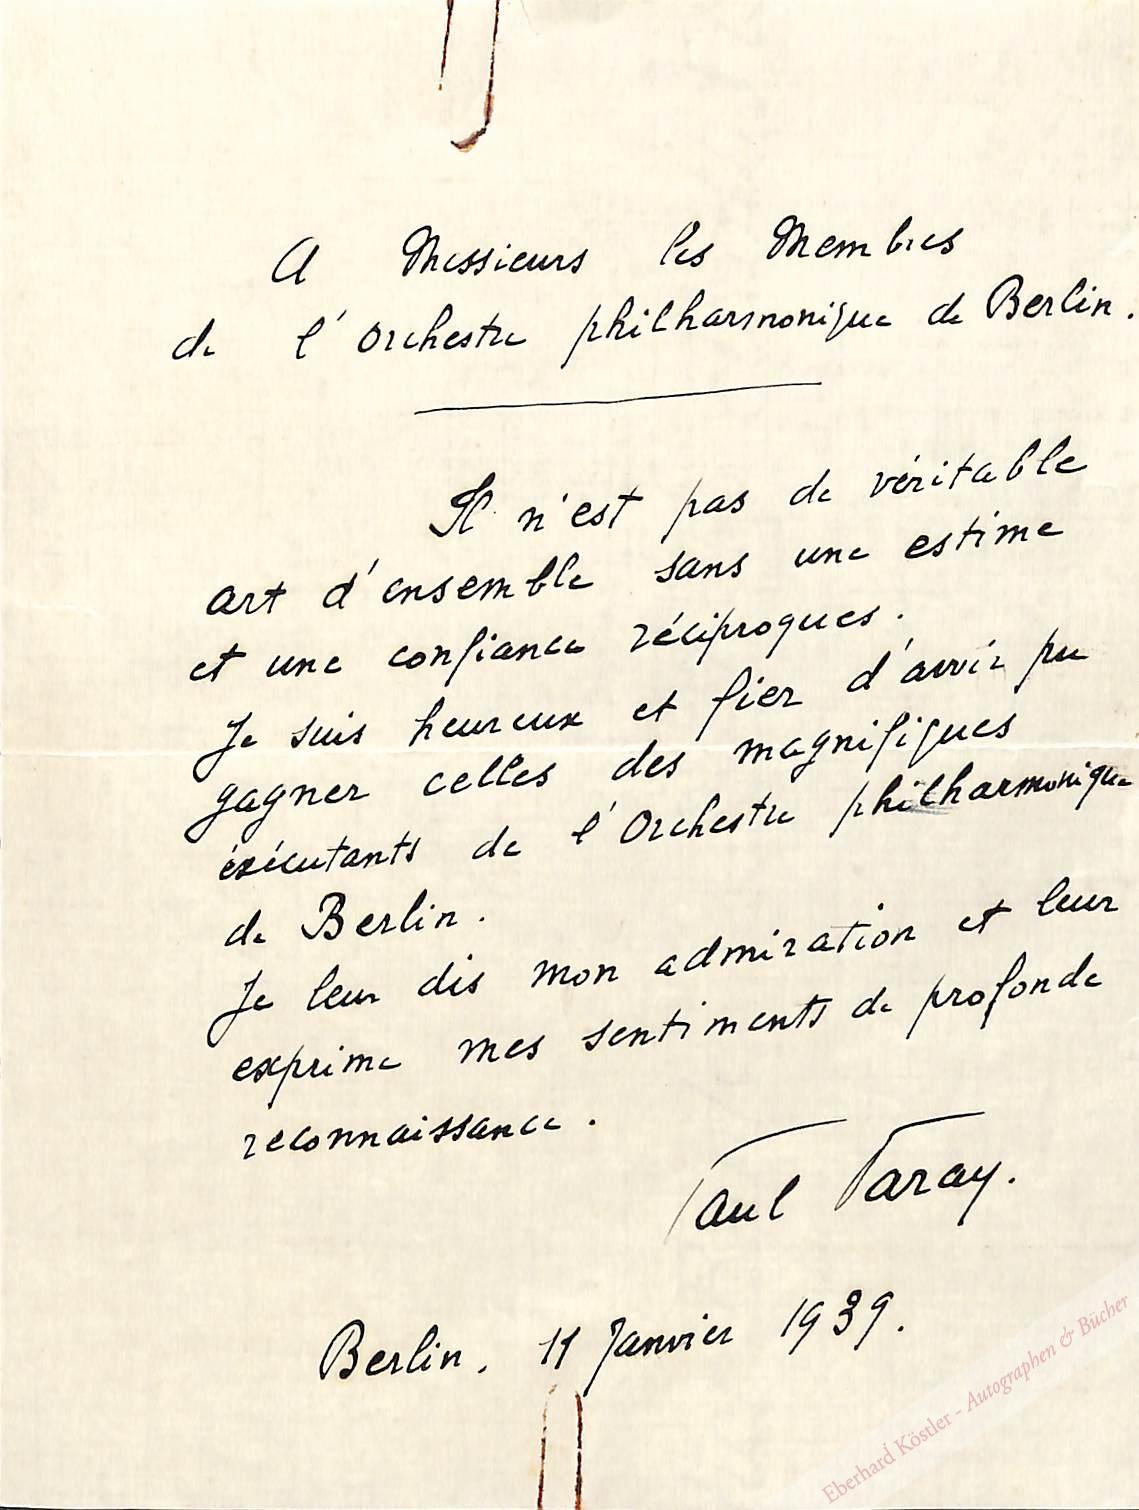 A Messieurs les Membres
de l'Orchestre philharmonique de Berlin.
Il n'est pas de véritable
art d'ensemble sans une estime
et une confiance réciproques.
Je suis heureux et fier d'avoir pu
gagner celles des magnifiques
éxécutants de l'Orchestre philharmonique
de Berlin.
Je leur dis mon admiration et leur
exprime mes sentiments de profonde
reconnaissance.
Paul Paray.
Berlin. 11 Janvier 1939.
Eberhard Köstler - Autographen & Bücher